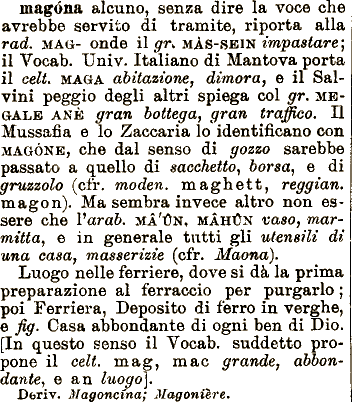 magóna alcuno, senza dire la voce che
avrebbe servito di tramite, riporta alla
rad. MAG- onde il gr. MÀS-SEIN impastare;
il Vocab. Univ. Italiano di Mantova porta
il celt. MAGA abitazione, dimora, e il Sal-
vini peggio degli altri spiega col gr. ME-
GALE ANÈ gran bottega, gran traffico. Il
Mussafia e lo Zaccaria lo identificano con
MAGÓNE, che dal senso di gozzo sarebbe
passato a quello di sacchetto, borsa, e di
gruzzolo (cfr. moden. maghett, reggian.
magon). Ma sembra invece altro non es-
sere che l'arab. MÂ'ÛN, MÂHÛN vaso, mar-
mitta, e in generale tutti gli utensili di
una casa, masserizie (cfr. Maona).
Luogo nelle ferriere, dove si dà la prima
preparazione al ferraccio per purgarlo;
poi Ferriera, Deposito di ferro in verghe,
e fig. Casa abbondante di ogni ben di Dio.
[In questo senso il Vocab. suddetto pro-
pone il celt. mag, mac grande, abbon-
dante, e an luogo].
Deriv. Magoncina; Magonière.